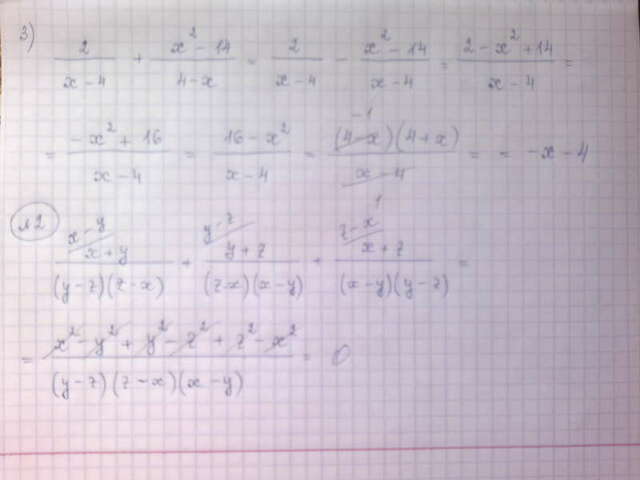 3) 2/(x-4) + (x²-14)/(4-x) = 2/(x-4) - (x²-14)/(x-4) = (2-x²+14)/(x-4) =
= (-x²+16)/(x-4) = (16-x²)/(x-4) = -1 (4-x)(4+x)/(x-4) = = -x-4
№2 x-y (x+y)/((y-z)(z-x)) + y-z (y+z)/((z-x)(x-y)) + z-x 1 (x+z)/((x-y)(y-z)) =
= (x²-y²+y²-z²+z²-x²)/((y-z)(z-x)(x-y)) = 0